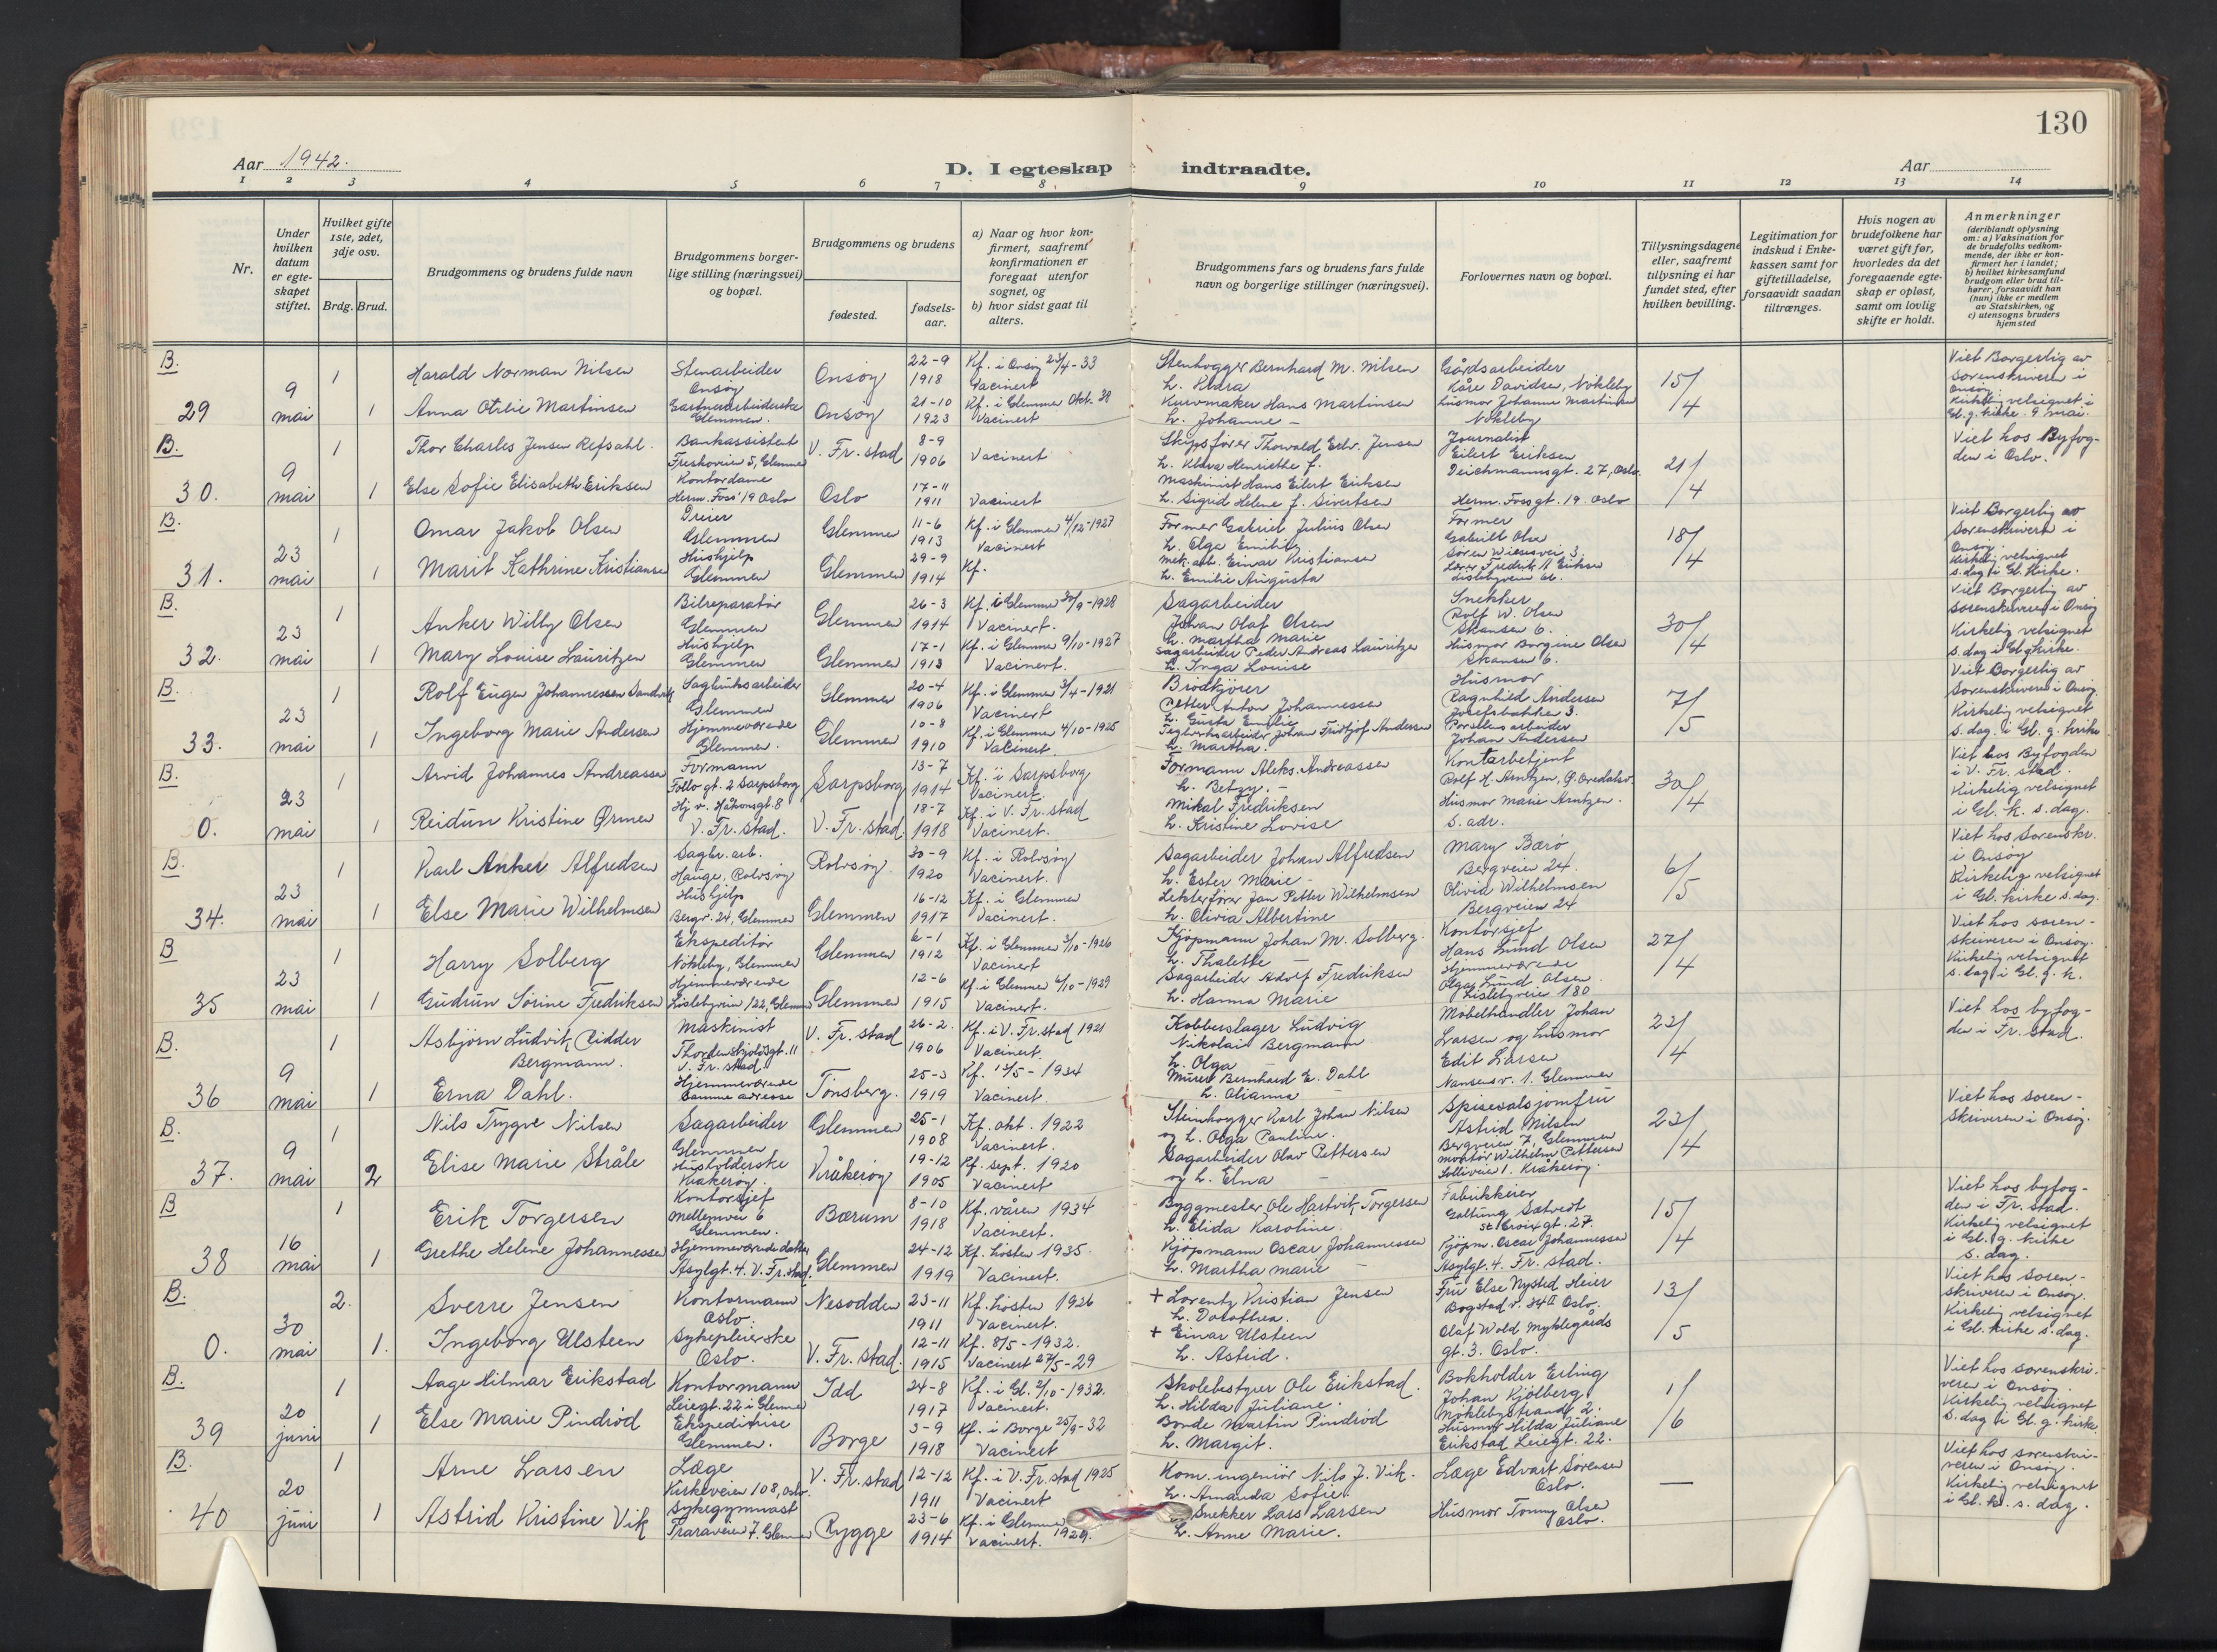 130
Aar 1942.
D. I egteskap indtraadte.
Aar
1 2 3 4 5 6 7 8 9 10 11 12 13 14
Nr.
Under hvilken datum er egteskapet stiftet.
Hvilket gifte 1ste, 2det, 3dje osv.
Brdg. Brud.
Brudgommens og brudens fulde navn
Brudgommens borgerlige stilling (næringsvei) og bopæl.
Brudgommens og brudens
fødested.
fødselsaar.
a) Naar og hvor konfirmert, saafremt konfirmationen er foregaat utenfor sognet, og
b) hvor sidst gaat til alters.
Brudgommens fars og brudens fars fulde navn og borgerlige stillinger (næringsvei).
Forlovernes navn og bopæl.
Tillysningsdagene eller, saafremt tillysning ei har fundet sted, efter hvilken bevilling.
Legitimation for indskud i Enkekassen samt for giftetilladelse, forsaavidt saadan tiltrænges.
Hvis nogen av brudefolkene har været gift før, hvorledes da det foregaaende egteskap er opløst, samt om lovlig skifte er holdt.
Anmerkninger (deriblandt oplysning om: a) Vaksination for de brudefolks vedkommende, der ikke er konfirmert her i landet; b) hvilket kirkesamfund brudgom eller brud tilhører, forsaavidt han (hun) ikke er medlem av Statskirken, og c) utensogns bruders hjemsted
B. 29 9 mai
1 Harald Norman Nilsen Stenarbeider Onsøy Onsøy 22-9 1918 Kf. i Onsøy 23/4-33 Vacinert
1 Anna Otilie Martinsen Gartnerarbeiderske Glemmen. Onsøy 21-10 1923 Kf. i Glemmen Okt. 38 Vacinert
Stenhogger Bernhard M. Nilsen
Kurvmaker Hans Martinsen h. Johanne
Gårdsarbeider Kåre Davidsen, Nøkleby
Husmor Johanne Martinsen Nøkleby
15/4
Viet Borgerlig av sorenskriveren i Onsøy. Kirkelig velsignet i Gl. g. kirke. 9 mai.
B. 30. 9 mai
1 Thor Charles Jensen Refsahl. Bankassistent Freskoveien 5, Glemmen V. Fr. stad 8-9 1906 Vacinert
1 Else Sofie Elisabeth Eriksen Kontordame Herm. Foss' 19 Oslo Oslo 17-11 1911 Vacinert
Skipsfører Thorvald Edv. Jensen h. Klara Henriethe f.
Maskinist Hans Eilert Eriksen h. Sigrid Helene f. Sivertsen
Journalist Eilert Eriksen Deichmannsgt. 27, Oslo.
Herm. Fossgt. 19. Oslo
21/4
Viet hos Byfogden i Oslo.
B. 31. 23 mai
1 Omar Jakob Olsen Dreier Glemmen Glemmen 11-6 1913 Kf. i Glemmen 4/12-1927 Vacinert
1 Marit Kathrine Kristiansen Hushjelp Glemmen Glemmen 29-9 1914 Kf.
Former Gabriel Julius Olsen h. Olga Emilie
Mek. arb. Einar Kristiansen h. Emilie Augusta
Former Gabriell Olsen Søren Wiesesvei 3.
Lærer Fredrik A Eriksen Lislebyveien 61.
18/4
Viet Borgerlig av sorenskriveren i Onsøy. Kirkelig velsignet s. dag i Gl. Kirke.
B. 32. 23 mai
1 Anker Wilby Olsen Bilreparatør Glemmen Glemmen 26-3 1914 Kf. i Glemmen 30/9-1928 Vacinert.
1 Mary Louise Lauritzen Hushjelp Glemmen Glemmen 17-1 1913 Kf. i Glemmen 9/10-1927 Vacinert.
Sagarbeider Johan Olaf Olsen h. Martha Marie
Sagarbeider Peder Andreas Lauritzen h. Inga Louise
Snekker Rolf W. Olsen Skansen 6.
Husmor Borgine Olsen Skansen 6.
30/4
Viet Borgerlig av sorenskriveren i Onsøy Kirkelig velsignet s. dag i Gl. g. kirke.
B. 33. 23 mai
1 Rolf Eugen Johannessen Sandvik Sagbruksarbeider Glemmen Glemmen 20-4 1906 Kf. i Glemmen 3/4-1921 Vacinert
1 Ingeborg Marie Andersen Hjemmeværende Glemmen. Glemmen 10-8 1910 Kf. i Glemmen 4/10-1925 Vacinert.
Brødkjører Petter Anton Johannessen h. Gusta Emilie
Teglverksarbeider Johan Fridtjof Andersen h. Martha.
Husmor Ragnhild Andersen Josefsbakken 3.
Porselensarbeider Johan Andersen
7/5
Viet Borgerlig av Sorenskriveren i Onsøy. Kirkelig velsignet s. dag. i Gl. g. kirke
B. 0. 23 mai
1 Arvid Johannes Andreassen Formann Follo gt. 2 Sarpsborg Sarpsborg 13-7 1914 Kf. i Sarpsborg Vacinert.
1 Reidun Kristine Ørmen Hj. v. Håkonsgt. 8 V. Fr. stad. V. Fr. stad. 18-7 1918 Kf. i V. Fr. stad Vacinert.
Formann Aleks. Andreassen h. Betzy. -
Mikal Fredriksen h. Kristine Lovise
Kontorbetjent Rolf H. Arntzen,
Husmor Marie Arntzen. s. adr.
30/4
Viet hos Byfogden i V. Fr. stad. Kirkelig velsignet i Gl. k. s. dag.
B. 34. 23 mai
1 Karl Anker Alfredsen Sagbr. arb. Hauge, Rolvsøy Rolvsøy 30-9 1920 Kf. i Rolvsøy Vacinert.
1 Else Marie Wilhelmsen Hushjelp Bergv. 24, Glemmen Glemmen 16-12 1917 Kf. i Glemmen Vacinert.
Sagarbeider Johan Alfredsen h. Ester Marie -
Lekterfører Jan Petter Wilhelmsen h. Olivia Albertine
Mary Barø Bergveien 24.
Olivia Wilhelmsen Bergveien 24
6/5
Viet hos Sorenskr. i Onsøy Kirkelig velsignet i Gl. kirke s. dag.
B 35 23 mai
1 Harry Solberg Ekspeditør Nøkleby, Glemmen Glemmen 6-1 1912 Kf. i Glemmen 3/10-1926 Vacinert
1 Gudrun Sørine Fredriksen Hjemmeværende Lislebyveien 122, Glemmen Glemmen 12-6 1915 Kf. i Glemmen 6/10-1929 Vacinert.
Kjøpmann Johan M. Solberg. h. Thalette -
Sagarbeider Adolf Fredriksen h. Hanna Marie
Kontorsjef Hans Lund Olsen
Hjemmeværende Olga Lund Olsen. Lislebyveien 180
27/4
Viet hos sorenskriveren i Onsøy. Kirkelig velsignet s. dag i Gl. g. k.
B. 36 9 mai
1 Asbjørn Ludvik Ridder Bergmann. Maskinist Thordenskjoldsgt. 11 V. Fr. stad V. Fr. stad 26-2. 1906 Kf. i V. Fr. stad 1921 Vacinert.
1 Erna Dahl. Hjemmeværende Samme adresse Tønsberg. 25-3 1919 Kf. 13/5-1934 Vacinert.
Kobberslager Ludvig Nikolai Bergmann h. Olga
Murer Bernhard E. Dahl h. Olianna
Møbelhandler Johan Larsen og husmor Edit Larsen Nansensv. 1. Glemmen
22/4
Viet hos byfogden i Fr. stad.
B. 37. 9 mai
1 Nils Trygve Nilsen Sagarbeider Glemmen Glemmen 25-1 1908 Kf. okt. 1922 Vacinert.
2 Elise Marie Stråle Husholderske Kråkerøy. Kråkerøy 19-12 1905 Kf. sept. 1920 Vacinert
Steinhogger Karl Johan Nilsen og h. Olga Pauline.
Sagarbeider Olav Pettersen og h. Elna
Spisesalsjomfru Astrid Nilsen Bergveien 7, Glemmen
Montør Wilhelm Pettersen Solliveien 1. Kråkerøy.
23/4
Viet hos sorenskriveren i Onsøy.
B 38 16 mai
1 Erik Torgersen Kontorsjef Mellemvei 6 Glemmen. Bærum 8-10 1918 Kf. våren 1934 Vacinert.
1 Grethe Helene Johannessen Hjemmeværende datter Asylgt. 4. V. Fr. stad. Glemmen 24-12 1919 Kf. høsten 1935. Vacinert.
Byggmester Ole Hartvik Torgersen h. Elida Karoline.
Kjøpmann Oscar Johannessen h. Martha Marie -
Fabrikkeier Galtung Sætvedt St. Croixgt. 27.
Kjøpm. Oscar Johannessen Asylgt. 4. Fr. stad.
15/4
Viet hos byfogden i Fr. stad. Kirkelig velsignet i Gl. g. kirke s. dag.
B. 0. 30 mai
2. Sverre Jensen Kontormann Oslo. Nesodden 23-11 1911 Kf. høsten 1926 Vacinert.
1. Ingeborg Ulsteen Sykepleierske Oslo. V. Fr. stad. 12-11 1915 Kf. 8/5-1932. Vacinert 27/5-29
+ Lorentz Kristian Jensen h. Dorothea.
+ Einar Ulsteen h. Astrid.
Fru Else Nysted Heier Bogstad v. 34 II Oslo.
Olaf Wold Myklegårds gt. 3. Oslo.
13/5
Viet hos Sorenskriveren i Onsøy. Kirkelig velsignet i Gl. kirke s. dag.
B. 39 20 juni
1 Aage Hilmar Erikstad Kontormann Leiegt. 22 i Glemmen Idd 24-8 1917 Kf. i Gl. 2/10-1932. Vacinert.
1 Else Marie Pindrød Ekspeditrise Glemmen. Borge 3-9 1918 Kf. i Borge 25/9-32 Vacinert
Skolebestyrer Ole Erikstad. h. Hilda Juliane.
Bonde Martin Pindrød h. Margit.
Bokholder Erling Johan Kjølberg Møklebystrandv 2.
Husmor Hilda Juliane Erikstad Leiegt. 22.
1/6
Viet hos sorenskriveren i Onsøy. Kirkelig velsignet s. dag i Gl. g. kirke.
B. 40 20 juni
1 Arne Larsen Læge Kirkeveien 108, Oslo. V. Fr. stad 12-12 1911 Kf. i V. Fr. stad 1925 Vacinert
1 Astrid Kristine Vik Sykegymnast Traraveien 7. Glemmen Rygge 23-6 1914 Kf. i Glemmen Vacinert. 1929.
Kom. ingeniør Nils J. Vik. h. Amanda Sofie.
Snekker Lars Larsen h. Anne Marie.
Læge Edvart Sørensen Oslo.
Husmor Tonny Olsen Oslo.
—
Viet hos sorenskriveren i Onsøy. Kirkelig velsignet i Gl. k. s. dag.